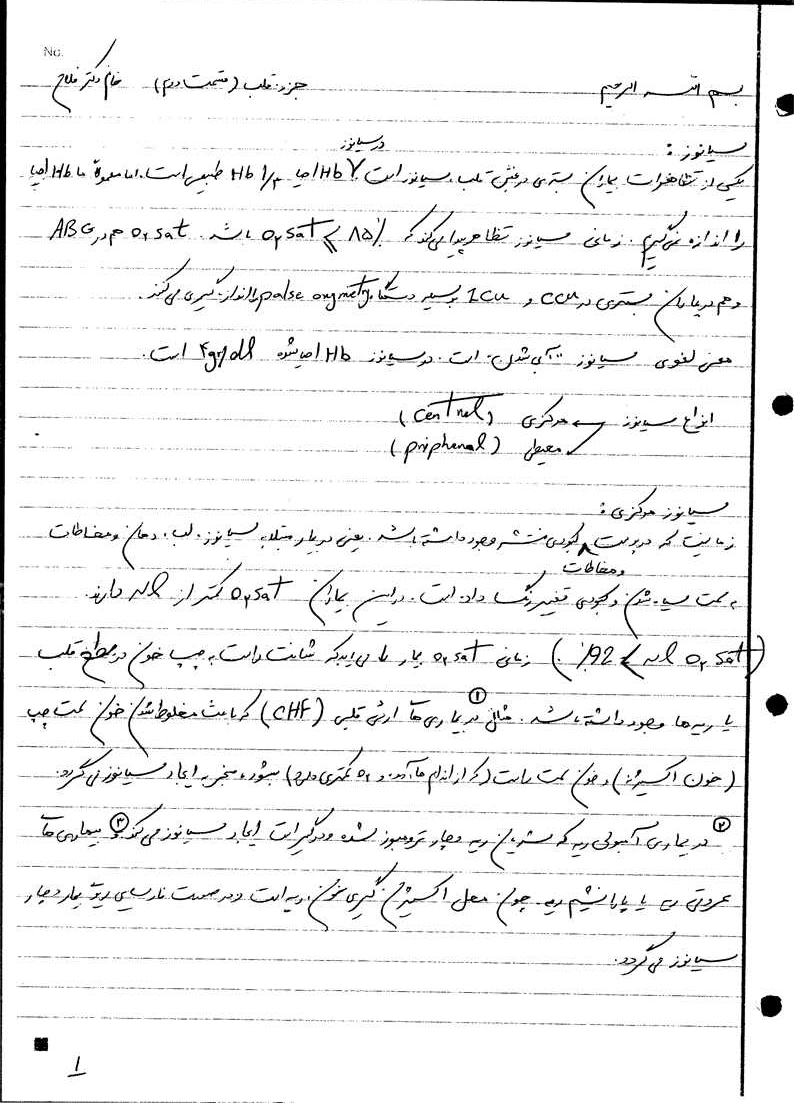 No.
بسم الله الرحیم جزوه قلب (قسمت دوم) خانم دکتر فلاح
سیانوز :
یکی از تظاهرات بیماران بستری در بخش قلب، سیانوز است. Hb احیا Hb طبیعی است. اما معمولاً ما Hb احیا
در سیانوز
را اندازه نمی‌گیریم. زمانی سیانوز تظاهر پیدا می‌کند که O₂ sat ⩽ ۸۵٪ باشد. O₂ sat هم در ABG
و هم در بیماران بستری در CCU و ICU توسط دستگاه pulse oxymetry اندازه‌گیری می‌کند.
معنی لغوی سیانوز "آبی شدن" است. در سیانوز Hb احیا شده ۴gr/dl است.
انواع سیانوز مرکزی (Central)
محیطی (Pripheral)
سیانوز مرکزی :
زمانیست که در پوست و مخاطات کبودی منتشر وجود داشته باشد. یعنی در بیمار مبتلا به سیانوز، لب، دهان و مخاطات
به سمت سیاه شدن و کبودی تغییر رنگ داده است. در این بیماران O₂ sat کمتر از نرمال دارند.
(O₂ sat نرمال > 92٪.) زمانی O₂ sat بیمار پایین می‌آید که شانت راست به چپ خون در سطح قلب
یا ریه‌ها وجود داشته باشد. مثلاً ① در بیماری‌های ارثی قلبی (CHF) که باعث مخلوط شدن خون سمت چپ
(خون اکسیژنه) و خون سمت راست (که از اندام‌ها آمده و O₂ کمتری دارد) میشود، منجر به ایجاد سیانوز می‌گردد.
② در بیماری آمبولی ریه که شریان ریه دچار ترومبوز شده و درگیر است ایجاد سیانوز می‌کند ③ بیماری‌های
عروقی ریه یا پارانشیم ریه. چون محل اکسیژن گیری خون، ریه است و در صورت نارسایی ریوی بیمار دچار
سیانوز می‌گردد.
1